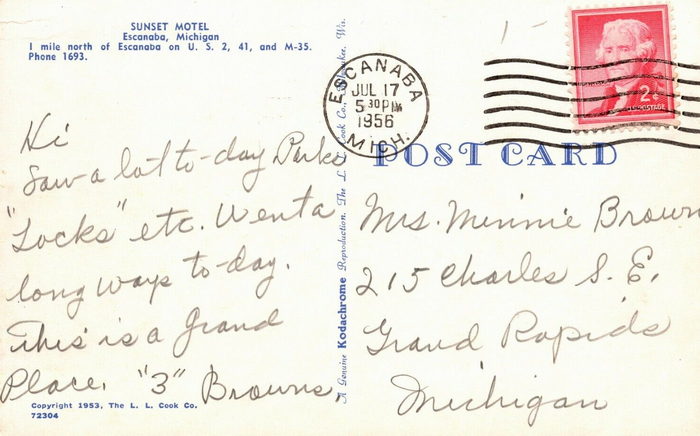 SUNSET MOTEL
Escanaba, Michigan
1 mile north of Escanaba on U. S. 2, 41, and M-35.
Phone 1693.
ESCANABA
JUL 17
5 30 PM
1956
MICH.
2¢
POSTAGE
POST CARD
Hi
Saw a lot to-day Parks
"Locks" etc. Went a
long ways to-day.
This is a grand
Place. "3" Browns.
Mrs. Minnie Brown
215 Charles S. E.
Grand Rapids
Michigan
A Genuine Kodachrome Reproduction. The L. L. Cook Co., Milwaukee, Wis.
Copyright 1953, The L. L. Cook Co.
72304